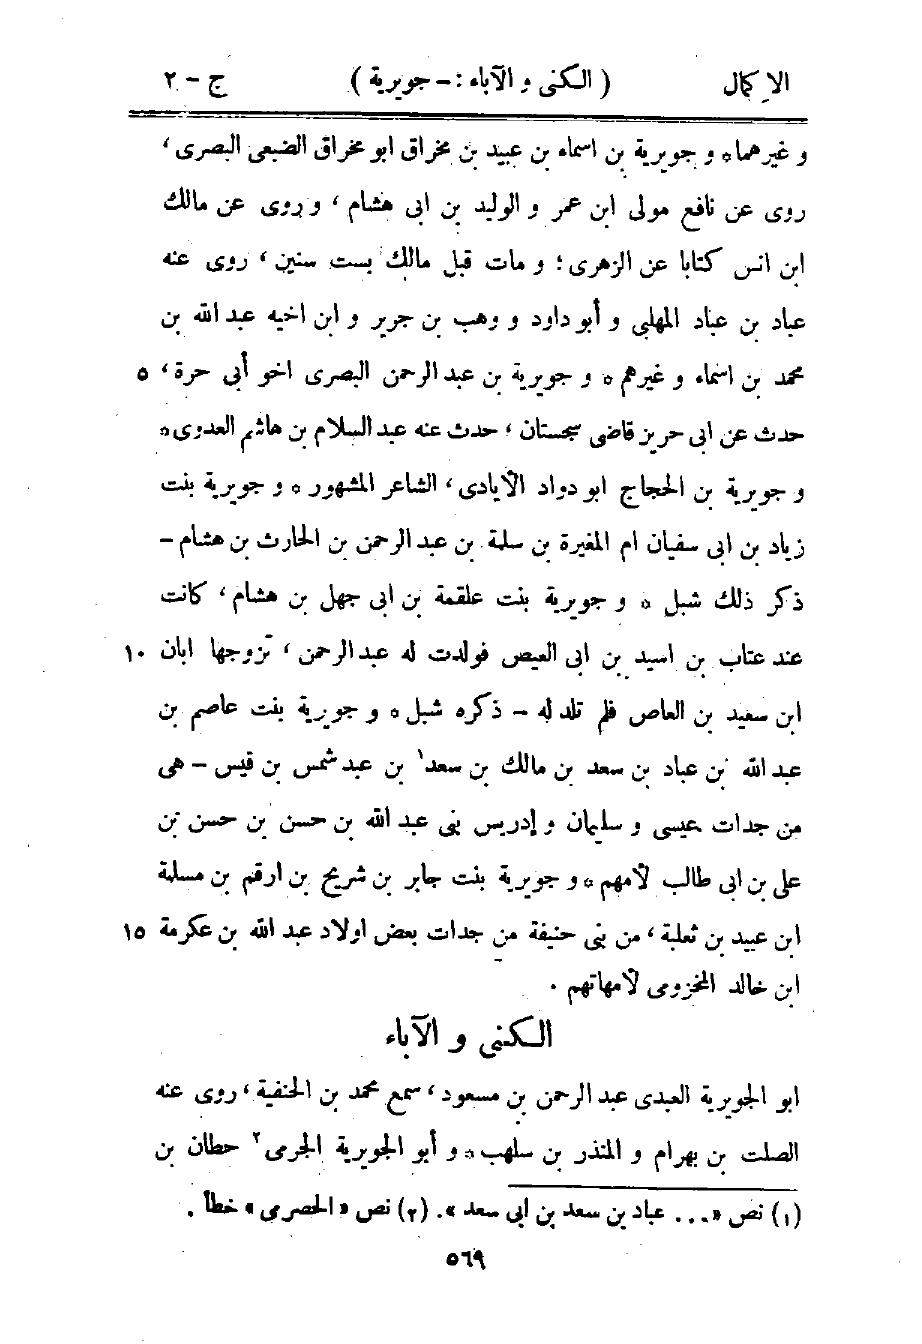 الإكمال ( الكنى و الآباء : - جويرية ) ج - ٢
و غيرهما * و جويرية بن اسماء بن عبيد بن مخراق ابو مخراق الضبعى البصرى ،
روى عن نافع مولى ابن عمر و الوليد بن ابى هشام ، و روى عن مالك
ابن انس كتابا عن الزهرى ؛ و مات قبل مالك بست سنين ، روى عنه
عباد بن عباد المهلبي و أبو داود و وهب بن جرير و ابن اخيه عبد الله بن
محمد بن اسماء و غيرهم * و جويرية بن عبد الرحمن البصرى اخو أبى حرة ، ٥
حدث عن ابى حريز قاضى سجستان ، حدث عنه عبد السلام بن هاشم العدوى *
و جويرية بن الحجاج ابو دواد الأيادى ، الشاعر المشهور * و جويرية بنت
زياد بن ابى سفيان ام المغيرة بن سلمة بن عبد الرحمن بن الحارث بن هشام -
ذكر ذلك شبل * و جويرية بنت علقمة بن ابى جهل بن هشام ، كانت
عند عتاب بن اسيد بن ابى العيص فولدت له عبد الرحمن ، تزوجها ابان ١٠
ابن سعيد بن العاص فلم تلد له - ذكره شبل * و جويرية بنت عاصم بن
عبد الله بن عباد بن سعد بن مالك بن سعد ١ بن عبد شمس بن قيس - هى
من جدات عيسى و سليمان و إدريس بنى عبد الله بن حسن بن حسن بن
على بن ابى طالب لأمهم * و جويرية بنت جابر بن شريح بن ارقم بن مسلمة
ابن عبيد بن ثعلبة ، من بنى حنيفة من جدات بعض اولاد عبد الله بن عكرمة ١٥
ابن خالد المخزومى لأمهاتهم .
الكنى و الآباء
ابو الجويرية العبدى عبد الرحمن بن مسعود ، سمع محمد بن الحنفية ، روى عنه
الصلت بن بهرام و المنذر بن سلهب * و أبو الجويرية الجرمى ٢ حطان بن
(١) نص « ... عباد بن سعد بن ابى سعد » . (٢) نص « الحضرمى » خطأ .
٥٦٩